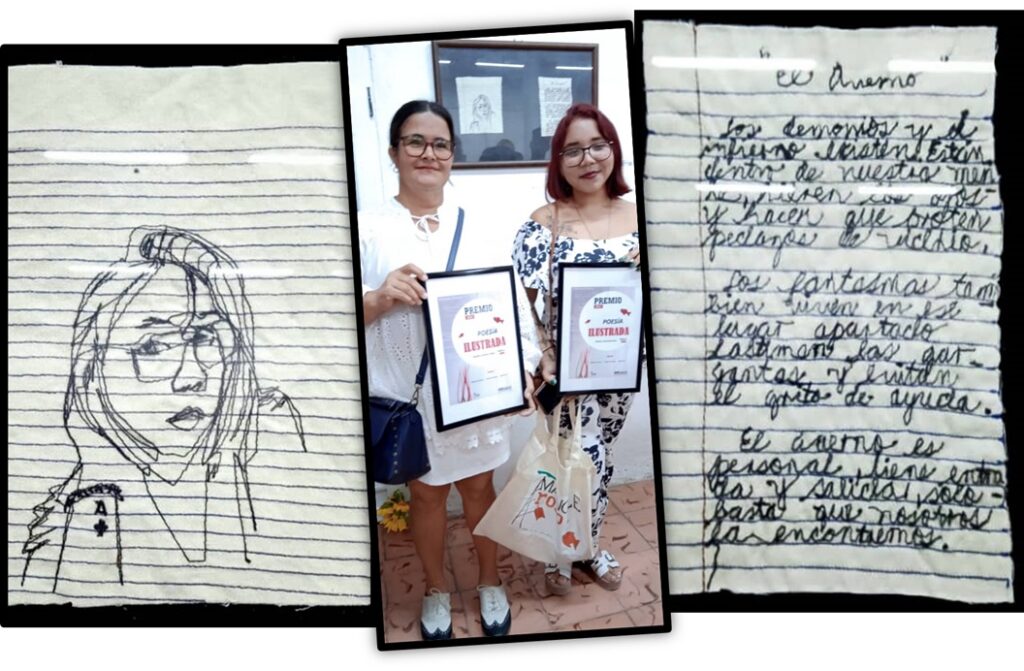 A
PREMIO
POESÍA
ILUSTRADA
PREMIO
POESÍA
ILUSTRADA
"El Averno"
Los demonios y el
infierno existen. Están
dentro de nuestra men
te, hieren los ojos
y hacen que broten
pedazos de
Los fantasmas tam
bien viven en ese
lugar apartado
lastiman las gar-
gantas y evitan
el grito de ayuda.
El averno es
personal, tiene entra
da y salida, solo
basta que nosotros
la encontremos.